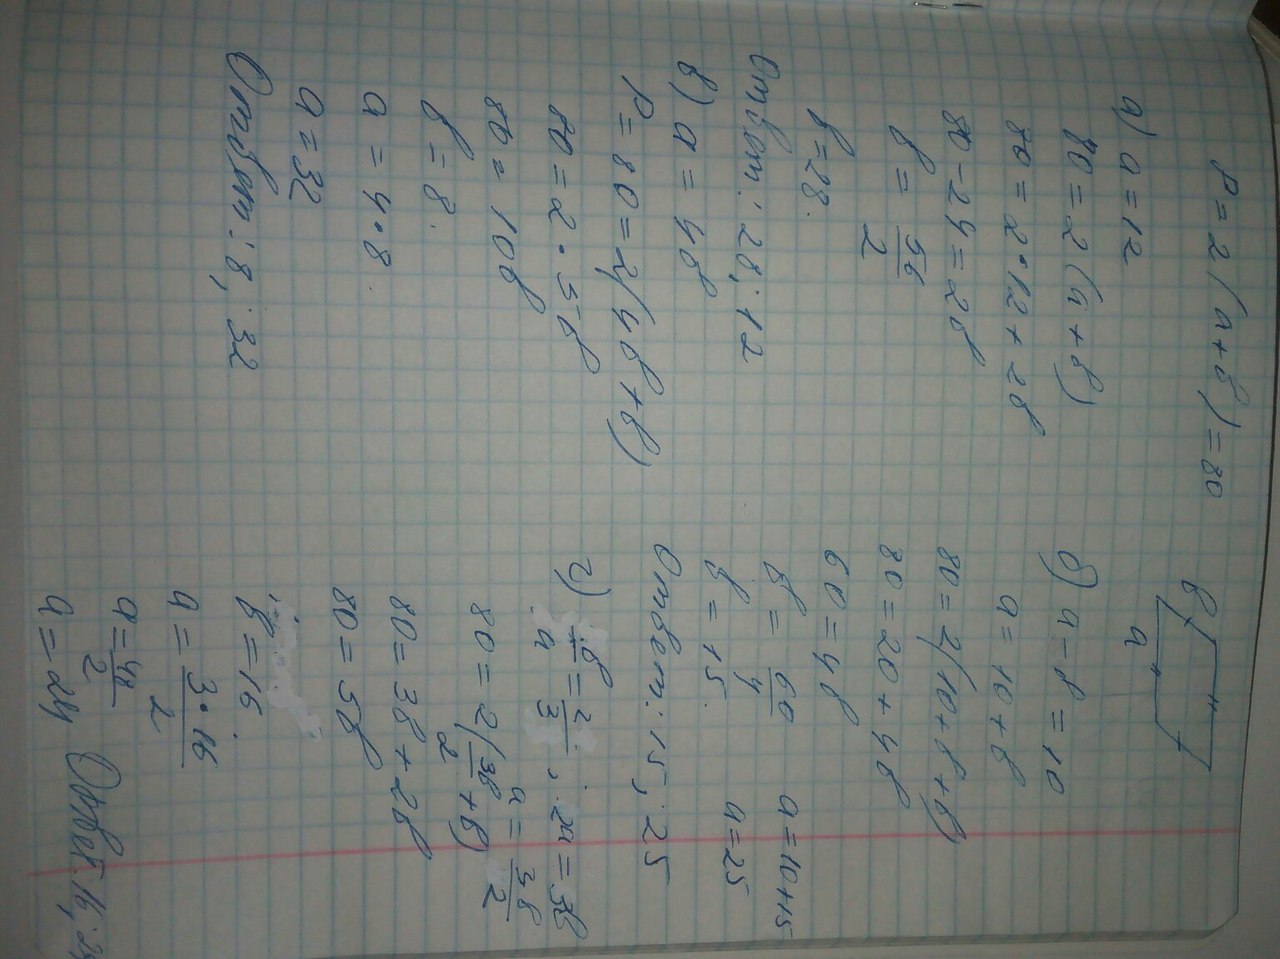 P = 2(a+в) = 80
в
a
а) a = 12
80 = 2(a+в)
80 = 2·12 + 2в
80 - 24 = 2в
в = 56/2
в = 28.
Ответ: 28; 12
в) a = 4в
P = 80 = 2(4в+в)
80 = 2·5в
80 = 10в
в = 8.
a = 4·8
a = 32
Ответ: 8; 32
б) a - в = 10
a = 10 + в
80 = 2(10+в+в)
80 = 20 + 4в
60 = 4в
в = 60/4 a = 10+15
в = 15. a = 25
Ответ: 15; 25
г) в/a = 2/3; 2a = 3в
a = 3в/2
80 = 2(3в/2 + в)
80 = 3в + 2в
80 = 5в
в = 16
a = 3·16/2
a = 48/2
a = 24 Ответ: 16; 24